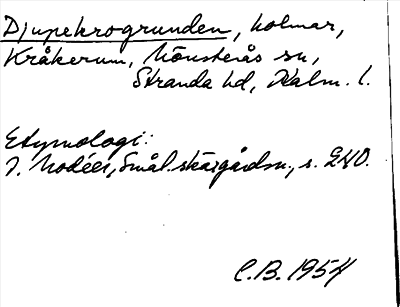 Djupekrogrunden, holmar,
Kråkerum, Mönsterås sn,
Stranda hd, Kalm. l.
Etymologi:
I. Modéer, Smål. skärgårdsn., s. 240.
C.B. 1954